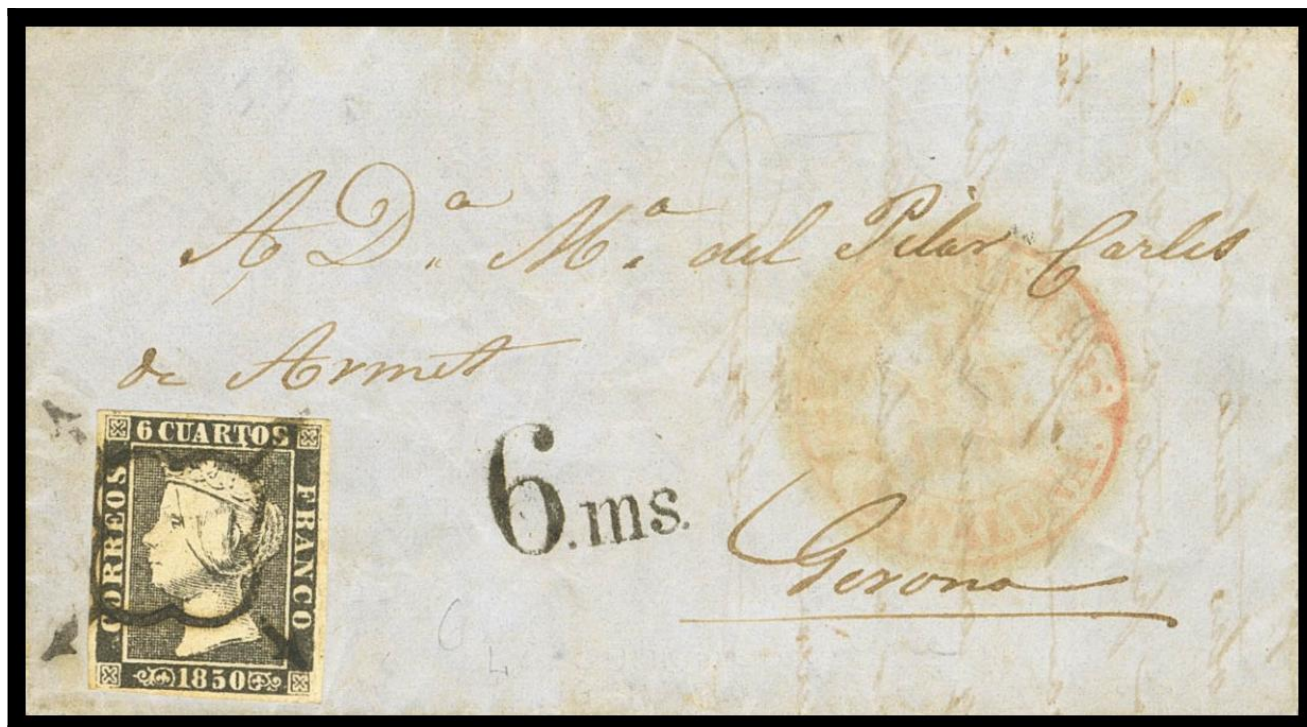 A Dª. Mª. del Pilar Carles
de Armet
6 CUARTOS
CORREOS
FRANCO
1850
6.ms.
Gerona
CATALUÑA.
6